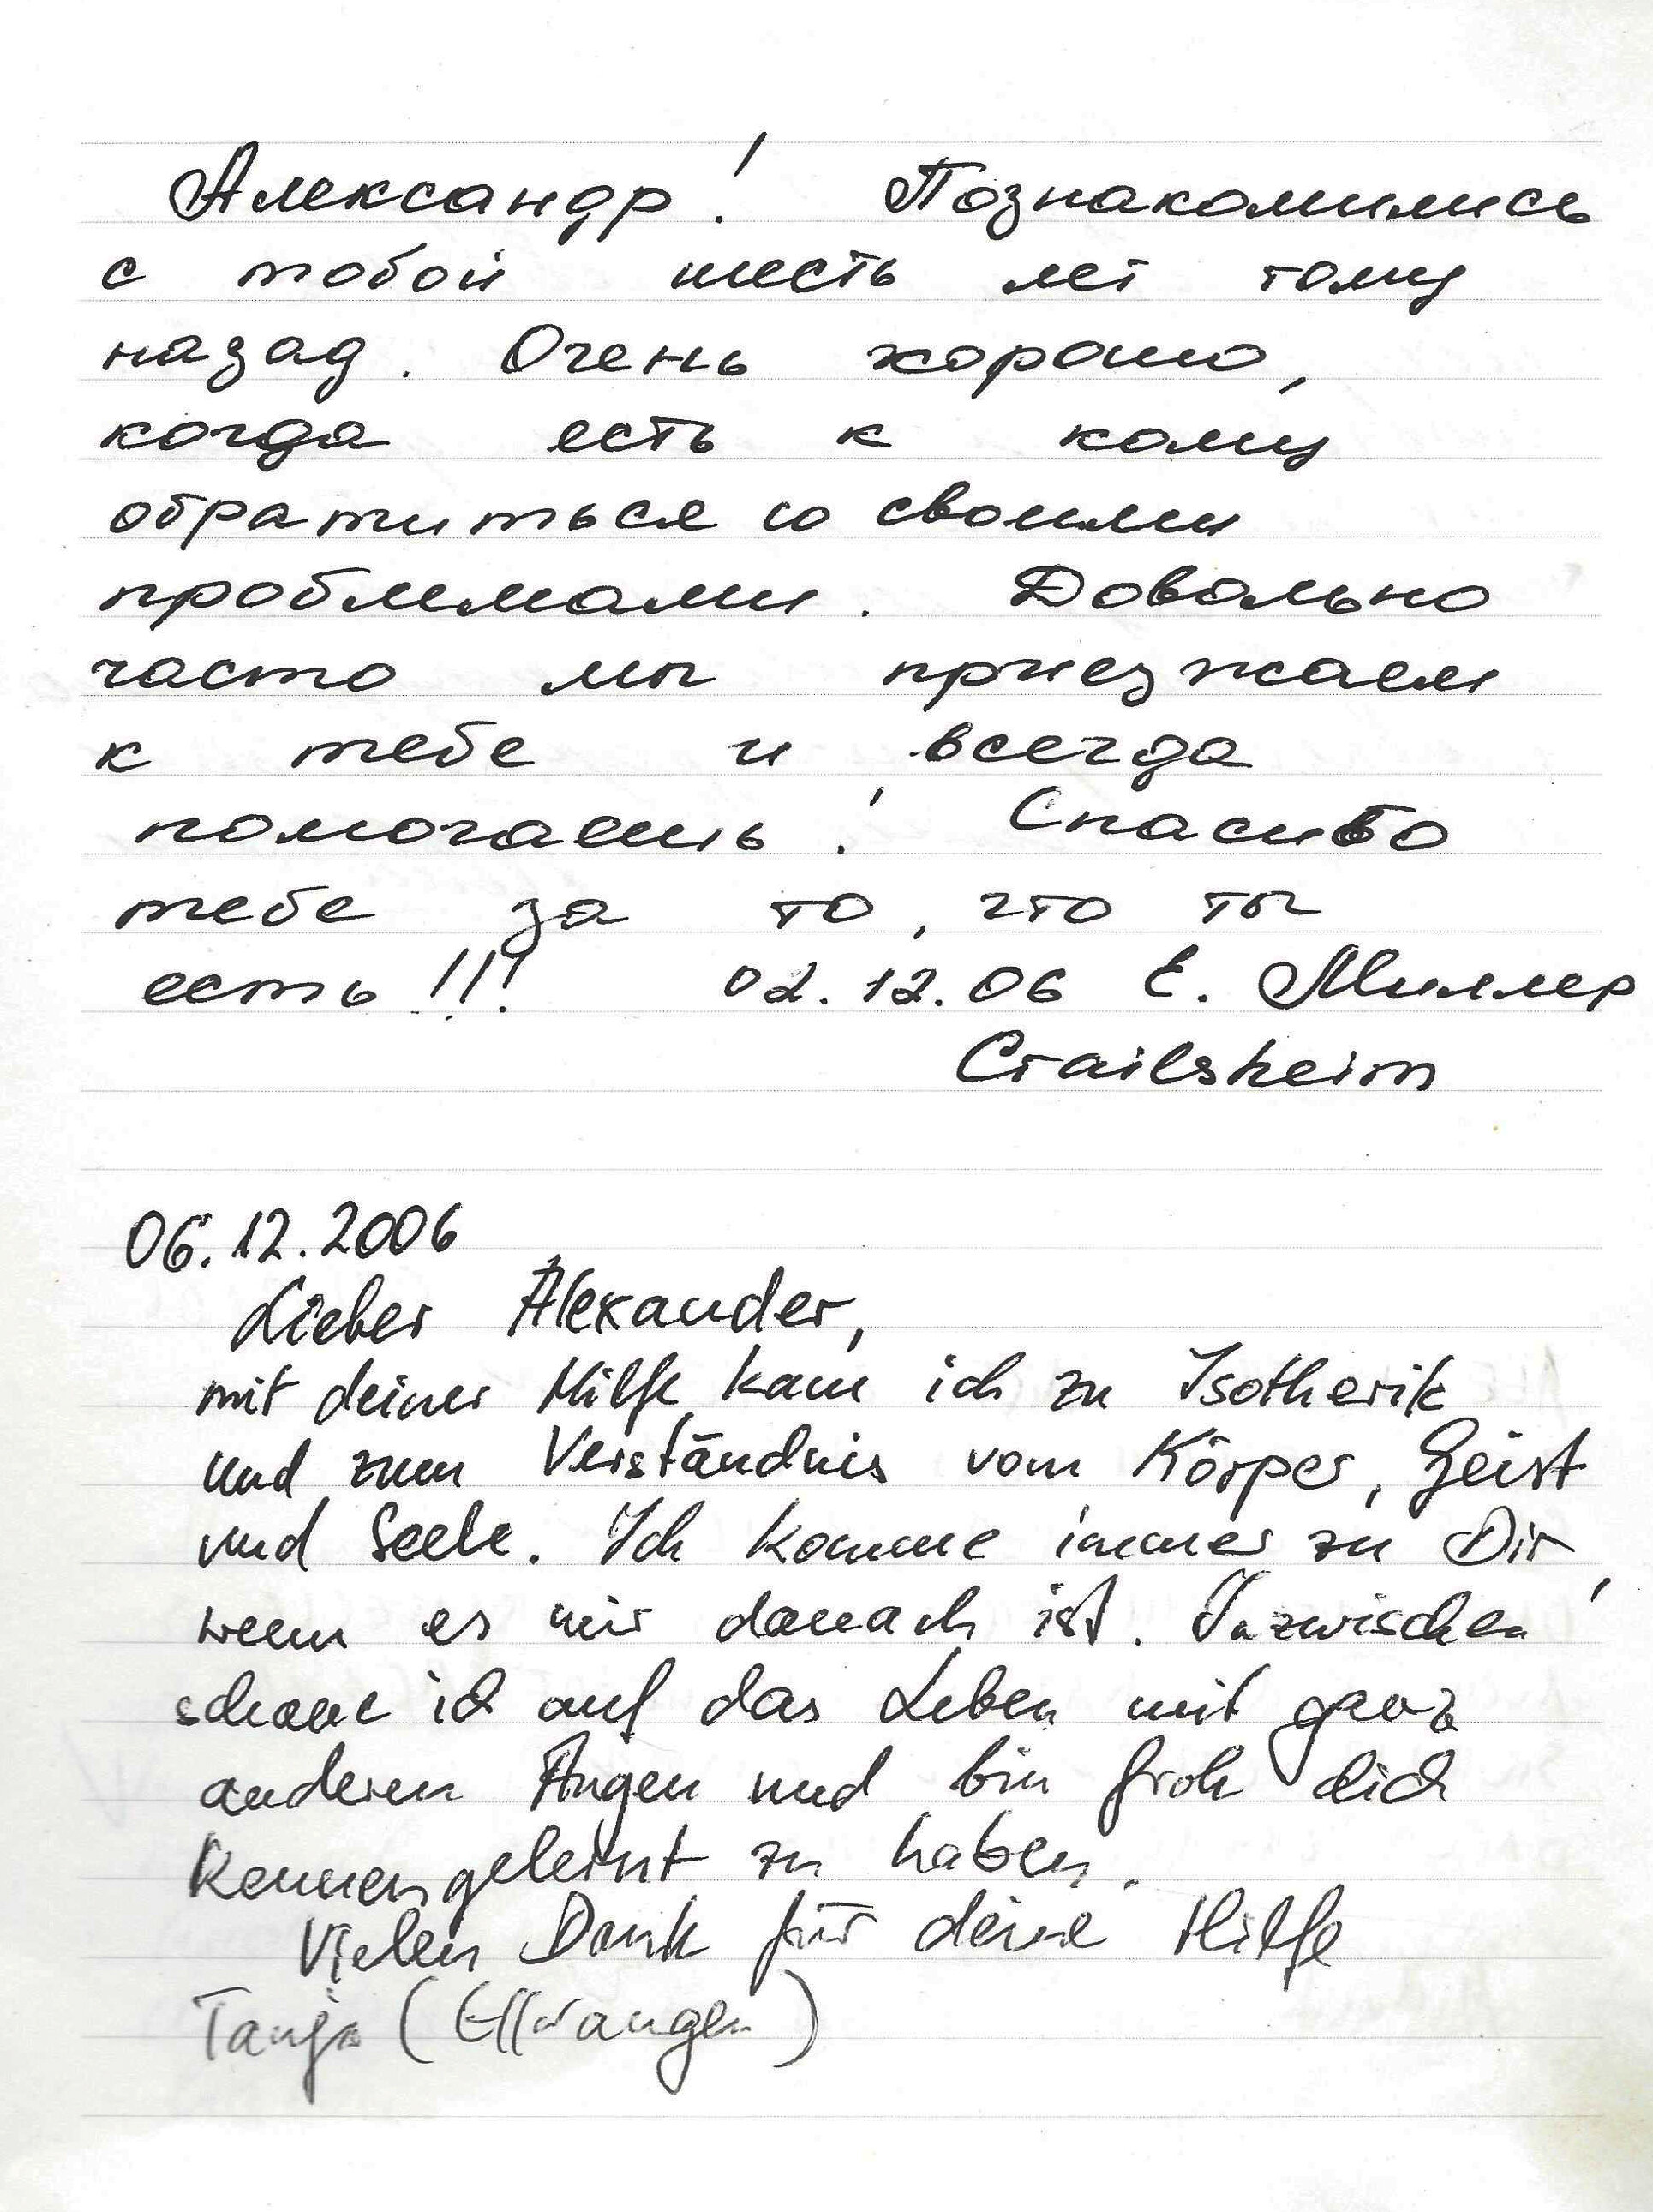 Александр! Познакомились
с тобой шесть лет тому
назад. Очень хорошо,
когда есть к кому
обратиться со своими
проблемами. Довольно
часто мы приезжаем
к тебе и всегда
помогаешь! Спасибо
тебе за то, что ты
есть!!! 02.12.06 Е. Миллер
Crailsheim
06.12.2006
Lieber Alexander,
mit deiner Hilfe kam ich zu Isotherik
und zum Verständnis vom Körper, Geist
und Seele. Ich komme immer zu Dir,
wenn es mir danach ist. Inzwischen
schaue ich auf das Leben mit ganz
anderen Augen und bin froh dich
kennengelernt zu haben.
Vielen Dank für deine Hilfe
Tanja (Ellwangen)